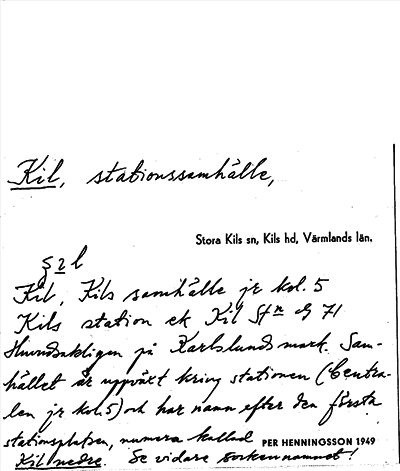 Kil, stationssamhälle,
Stora Kils sn, Kils hd, Värmlands län.
Kil, Kils samhälle jr kol. 5
Kils station ek Kil Stn dg 71
Huvudsakligen på Karlslunds mark. Sam-
hället är uppväxt kring stationen (Centra-
len jr kol. 5) och har namn efter den första
stationsplatsen, numera kallad PER HENNINGSSON 1949
Kil nedre. Se vidare sockennamnet!